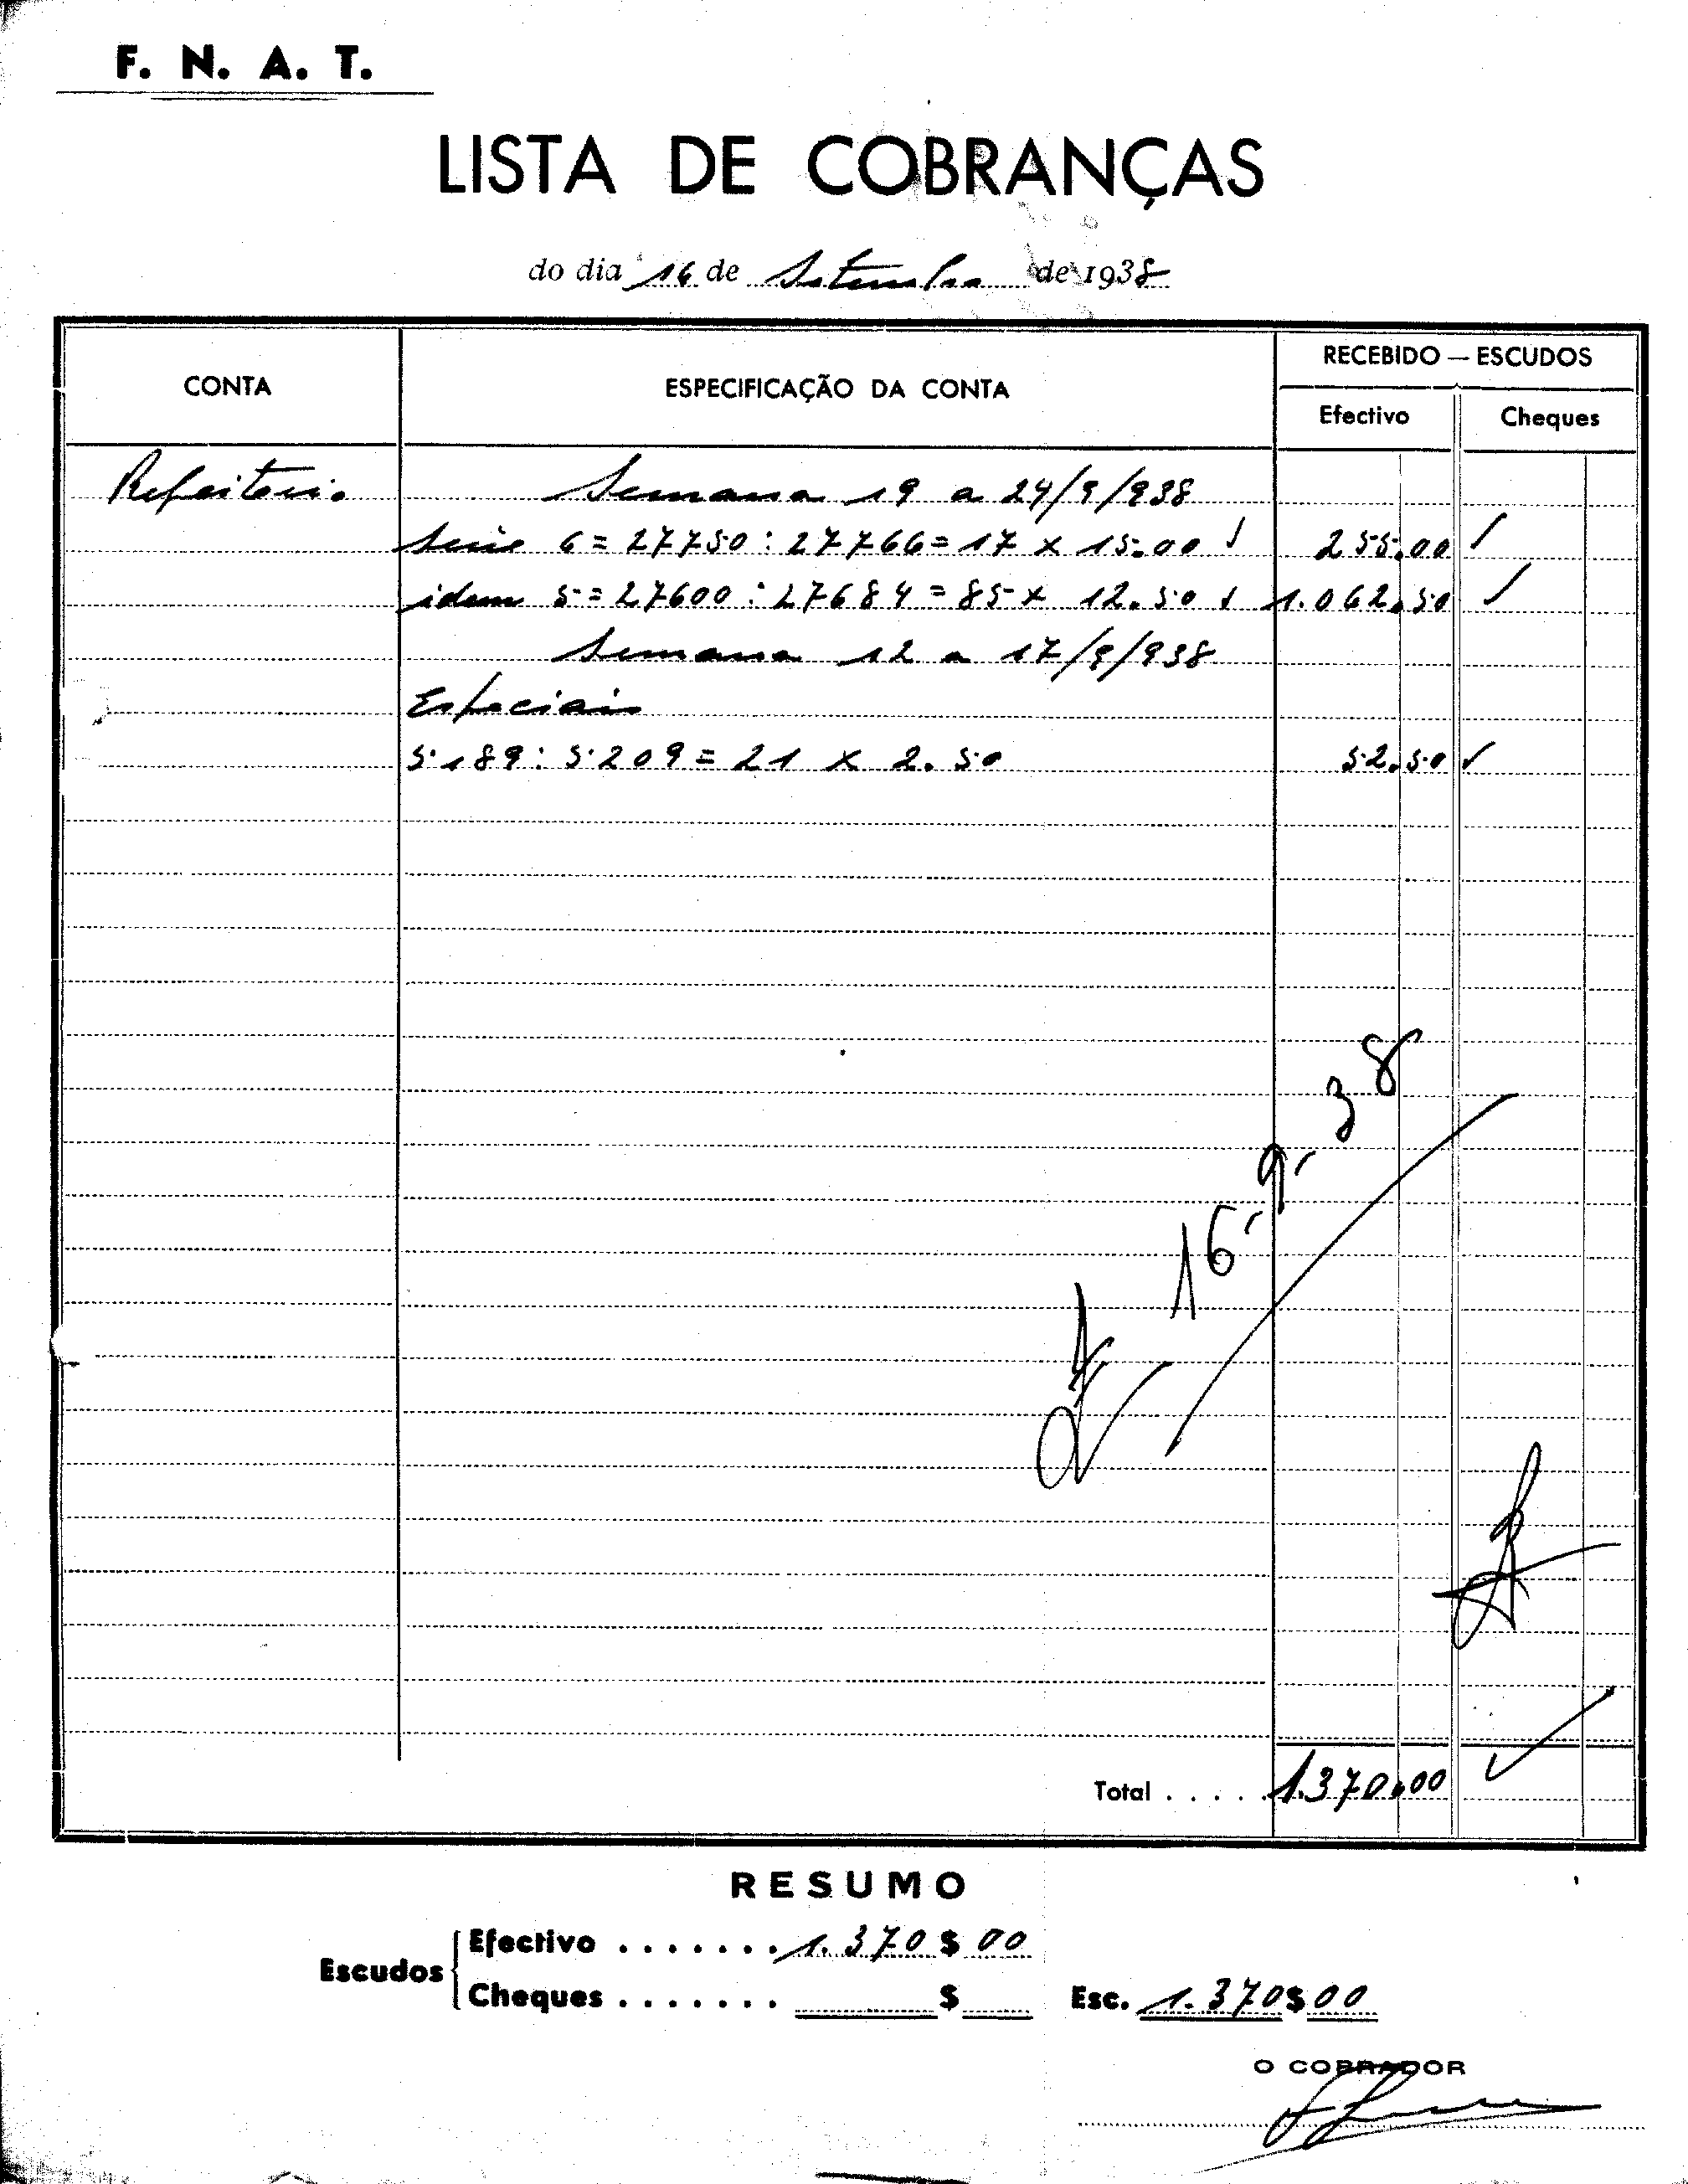 F. N. A. T.
LISTA DE COBRANÇAS
do dia 16 de Setembro de 1938
CONTA
ESPECIFICAÇÃO DA CONTA
RECEBIDO — ESCUDOS
Efectivo
Cheques
Refeitorio Semana 19 a 24/9/938
Serie 6 = 27750 : 27766 = 17 x 15.00 ✓ 255.00 ✓
idem 5 = 27600 : 27684 = 85 x 12.50 ✓ 1.062.50 ✓
Semana 12 a 17/9/938
Especiais
5189 : 5209 = 21 x 2.50 52.50 ✓
16-9-38
Total . . . . . 1.370.00 ✓
RESUMO
Escudos
Efectivo . . . . . . . 1.370 $ 00
Cheques . . . . . . . $
Esc. 1.370 $ 00
O COBRADOR